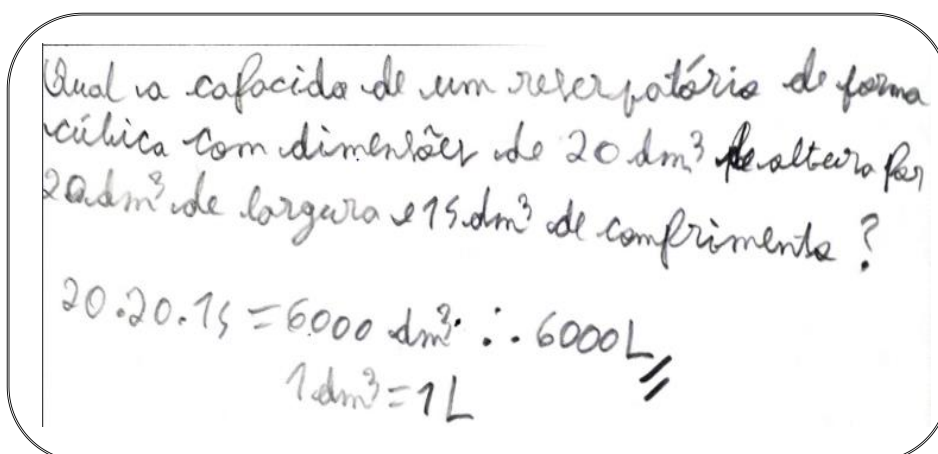 Qual a capacida de um reserpatório de forma
cúbica com dimensões de 20 dm³ de altura por
20 dm³ de largura e 15 dm³ de comprimento ?
20.20.15 = 6000 dm³ ∴ 6000L
1 dm³ = 1L